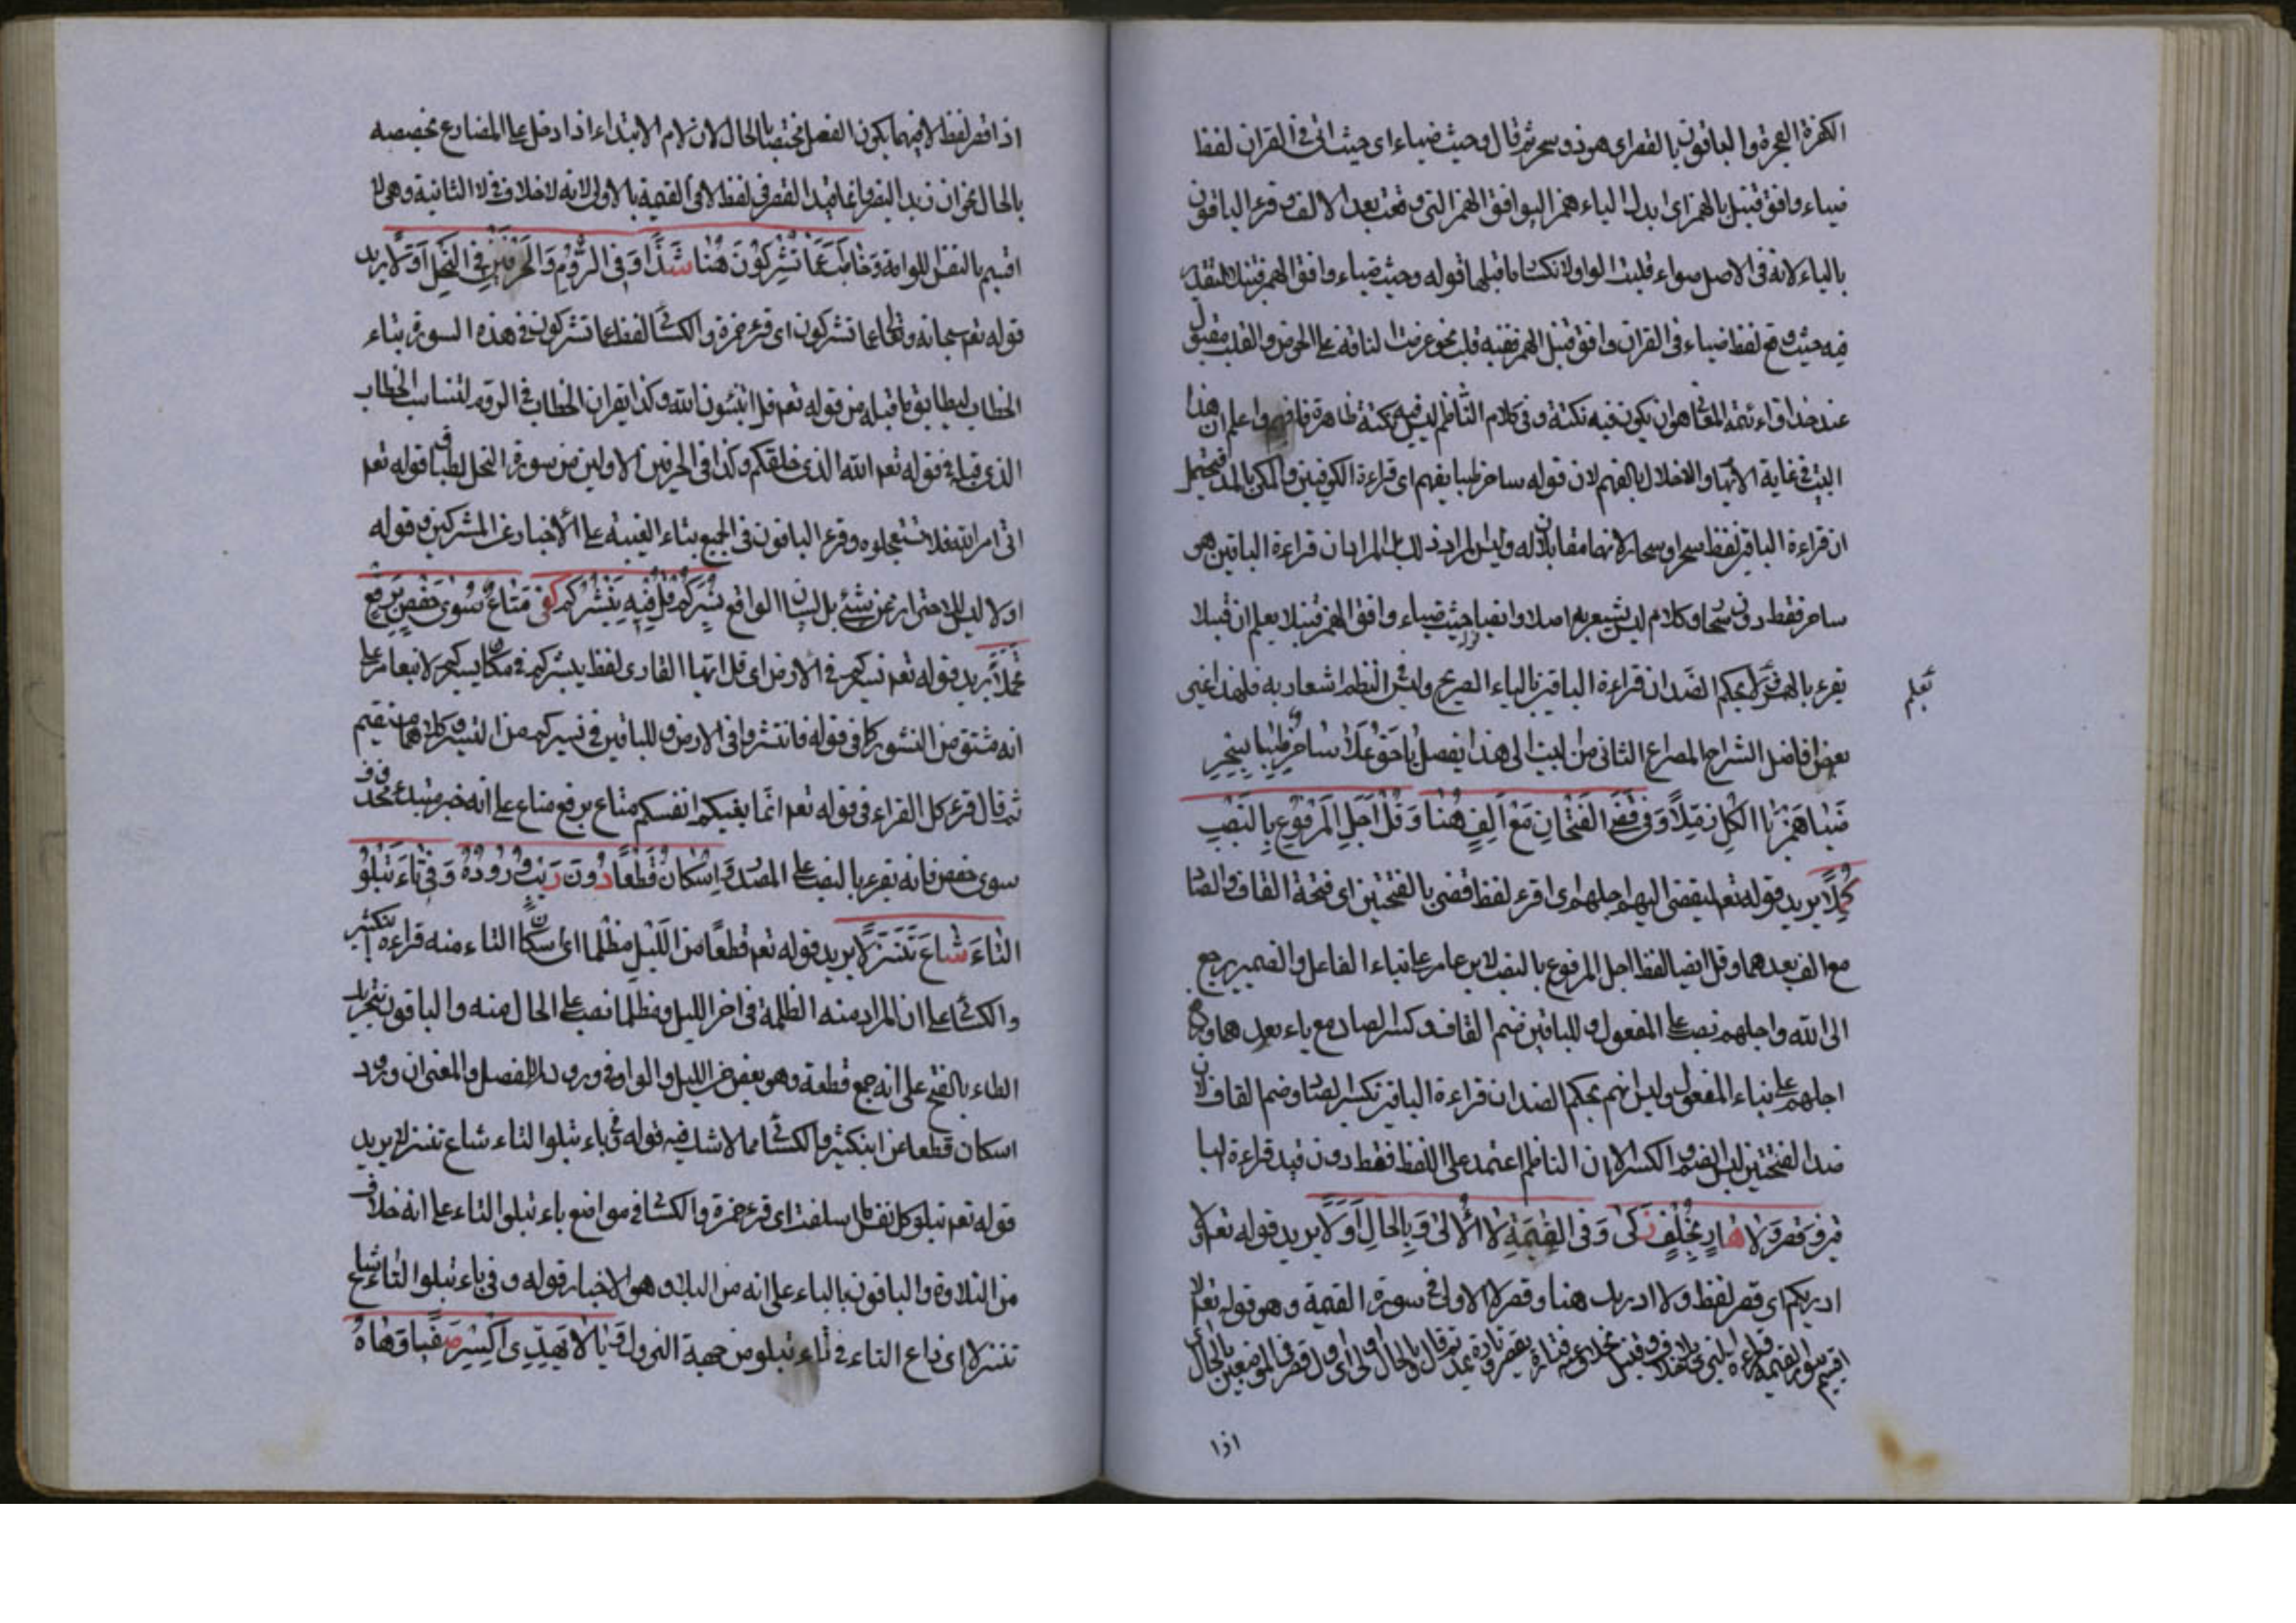 الكفرة الفجرة والباقون بالقصر اى هو ذو سحر ثم قال وحيث ضياء اى حيث اتى فى القران لفظ
ضياء وافق قنبل بالهمز اى بدل الياء همز اليوافق الهمز التى وقعت بعد الالف وقرء الباقون
بالياء لانه فى الاصل ضواء قلبت الواو لانكسار ما قبلها قوله وحيث ضياء وافق الهمز قنبلا لتقدير
فيه حيث وقع لفظ ضياء فى القران وافق قنبل الهمز ففيه قلب نحو عرضت الناقة على الحوض والقلب مقبول
عند حذاق ائمة المعانى هو ان يكون فيه نكتة وفى كلام الناظم ليس فيه نكتة ظاهرة فافهم واعلم ان هذا
البيت فى غاية الابهام والاخلال بالفهم لان قوله ساحر ظبا يفهم اى قراءة الكوفيين والمكى بالمد فيحتمل
ان قراءة الباقين لفظ سحر او سحار لانهما مقابلان له وليس المراد ذلك بل المراد ان قراءة الباقين هو
ساحر فقط دون سحار وكلام ليس يشعر به اصلا وايضا حيث ضياء وافق الهمز قنبلا يعلم ان قنبلا
يقرء بالهمز ولم يحكم الضد ان قراءة الباقين بالياء الصريح وليس فى النظم اشعار به فلهذا غير
تعلم
بعض افاضل الشراح المصراع الثانى من البيت الى هذا يفصل يا حق علا ساحر ظبا بسحر
ضيا همز يا الكل زملا وفى قضى الفتحان مع الف هنا وقل اجل المرفوع بالنصب
كملا يريد قوله تعم ليقضى اليهم اجلهم اى اقرء لفظ قضى بالفتحتين اى فتحة القاف والضاد
مع الف بعدهما وقل ايضا لفظ اجل المرفوع بالنصب لابن عامر على بناء الفاعل والضمير يرجع
الى الله واجلهم نصب على المفعول وللباقين ضم القاف وكسر الضاد مع ياء بعدهما ورفع
اجلهم على بناء المفعول وليس نهم بحكم الضد ان قراءة الباقين بكسر الضاد وضم القاف لان
ضد الفتحتين ليس الضم والكسر الا ان الناظم اعتمد على اللفظ فقط دون قيد قراءة الباقين
وقصر ولا هاد بخلف زكى وفى القيمة لا الاولى وبالحال اولا يريد قوله تعم ولا
ادريكم اى قصر لفظ ولا ادريك هنا وقصر لا الاولى فى سورة القيمة وهو قوله تعم لا
اذا
اذا قصر لفظ لا فيهما يكون الفعل مختصا بالحال لان لام الابتداء اذا دخل على المضارع يخصصه
بالحال نحو ان زيدا ليضرب انما قيد القصر فى لفظ لا فى القيمة بالاولى لانه لا خلاف فى لا الثانية وهى لا
اقسم بالنفس اللوامة وخاطب عما تشركون هنا شذا وفى الروم والحرفين فى النحل اولا يريد
قوله تعم سبحانه وتعالى عما تشركون اى قرء حمزة والكسائى لفظ عما تشركون فى هذه السورة بتاء
الخطاب ليطابق ما قبله من قوله تعم قل اتنبئون الله وكذا يقران الخطاب فى الروم لتناسب الخطاب
الذى قبله فى قوله تعم الله الذى خلقكم وكذا فى الحرفين الاولين من سورة النحل لطباق قوله تعم
اتى امر الله فلا تستعجلوه وقرء الباقون فى الجميع بتاء الغيبة على الاخبار عن المشركين وقوله
اولا ليس للاحتراز عن شئ بل لبيان الواقع يسيركم قل فيه ينشركم كفى متاع سوى حفص برفع
تحملا يريد قوله تعم يسيركم فى الارض اى قل ايها القارى لفظ ينشركم فى مكان يسيركم لابن عامر على
انه مشتق من النشور كما فى قوله فانتشروا فى الارض وللباقين فى يسيركم من التسيير وكلاهما مستقيم
ثم قال قرء كل القراء فى قوله تعم انما بغيكم على انفسكم متاع برفع متاع على انه خبر مبتدء محذوف
سوى حفص فانه يقرء بالنصب على المصدر واسكان قطعا دون ريب وروده وفى باء تبلوا
التاء شاع تنزلا يريد قوله تعم قطعا من الليل مظلما اى اسكان الطاء منه قراءة ابن كثير
والكسائى على ان المراد منه الظلمة فى اخر الليل ومظلما نصب على الحال منه والباقون بتحريك
الطاء بالفتح على انه جمع قطعة وهو بعض من الليل والواو فى وروده للفصل والمعنى ان ورود
اسكان قطعا عن ابن كثير والكسائى مما لا شك فيه قوله فى باء تبلوا التاء شاع تنزلا يريد
قوله تعم تبلو كل نفس ما اسلفت اى قرء حمزة والكسائى فى موضع باء تبلوا التاء على انه خلاف
من التلاوة والباقون بالباء على انه من البلاء وهو الاختبار قوله وفى باء تبلوا التاء شاع
تنزلا اى شاع التاء فى باء تبلو من جهة النزول ويا لا يهدى اكسر صفيا وهاه